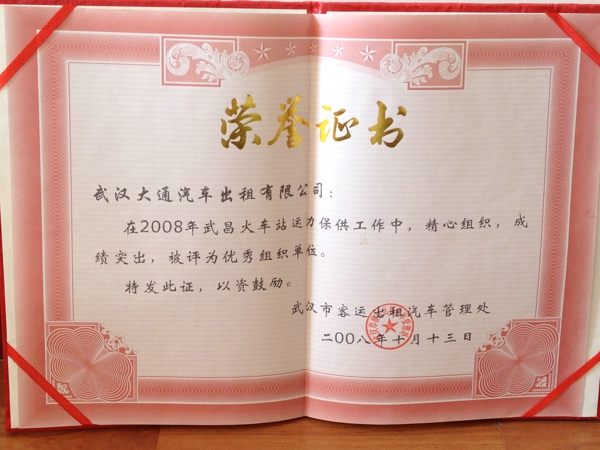 荣誉证书
武汉大通汽车出租有限公司：
在2008年武昌火车站运力保供工作中，精心组织，成
绩突出，被评为优秀组织单位。
特发此证，以资鼓励。
武汉市客运出租汽车管理处
二OO八年十月十三日